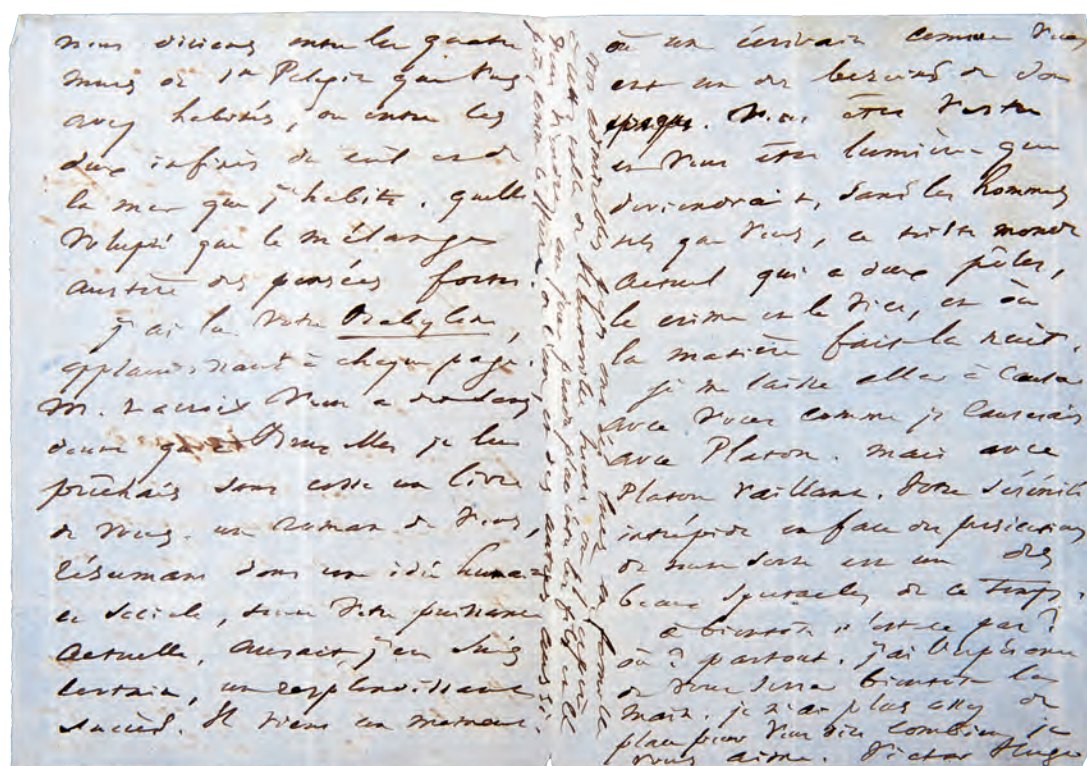 nous vivions entre les quatre
murs de Ste Pélagie que vous
avez habités, ou entre les
deux infinis du ciel et de
la mer que j'habite. quelle
volupté que le mélange
austère des pensées fortes.
j'ai lu votre Babylone,
applaudissant à chaque page.
M. Lacroix vous a dit sans
doute qu'à Bruxelles je lui
prêchais sans cesse un livre
de vous. un roman de vous,
résumant dans une idée humaine
et sociale, toute votre puissance
actuelle, aurait, j'en suis
certain, un resplendissant
succès. Il vient un moment
où un écrivain comme vous
est un des besoins de son
époque. Vous êtes vertu
et vous êtes lumière. que
deviendrait, sans les hommes
tels que vous, ce triste monde
actuel qui a deux pôles,
le crime et le vice, et où
la matière fait la nuit.
je me laisse aller à causer
avec vous comme je causerais
avec Platon. mais avec
Platon vaillant. Votre sérénité
intrépide en face des persécutions
de toute sorte est un des
beaux spectacles de ce temps.
à bientôt n'est-ce pas?
où? partout. j'ai l'espérance
de vous serrer bientôt la
main. je n'ai plus assez de
place pour vous dire combien je
vous aime. Victor Hugo
vos admirables pages ont été lues en famille